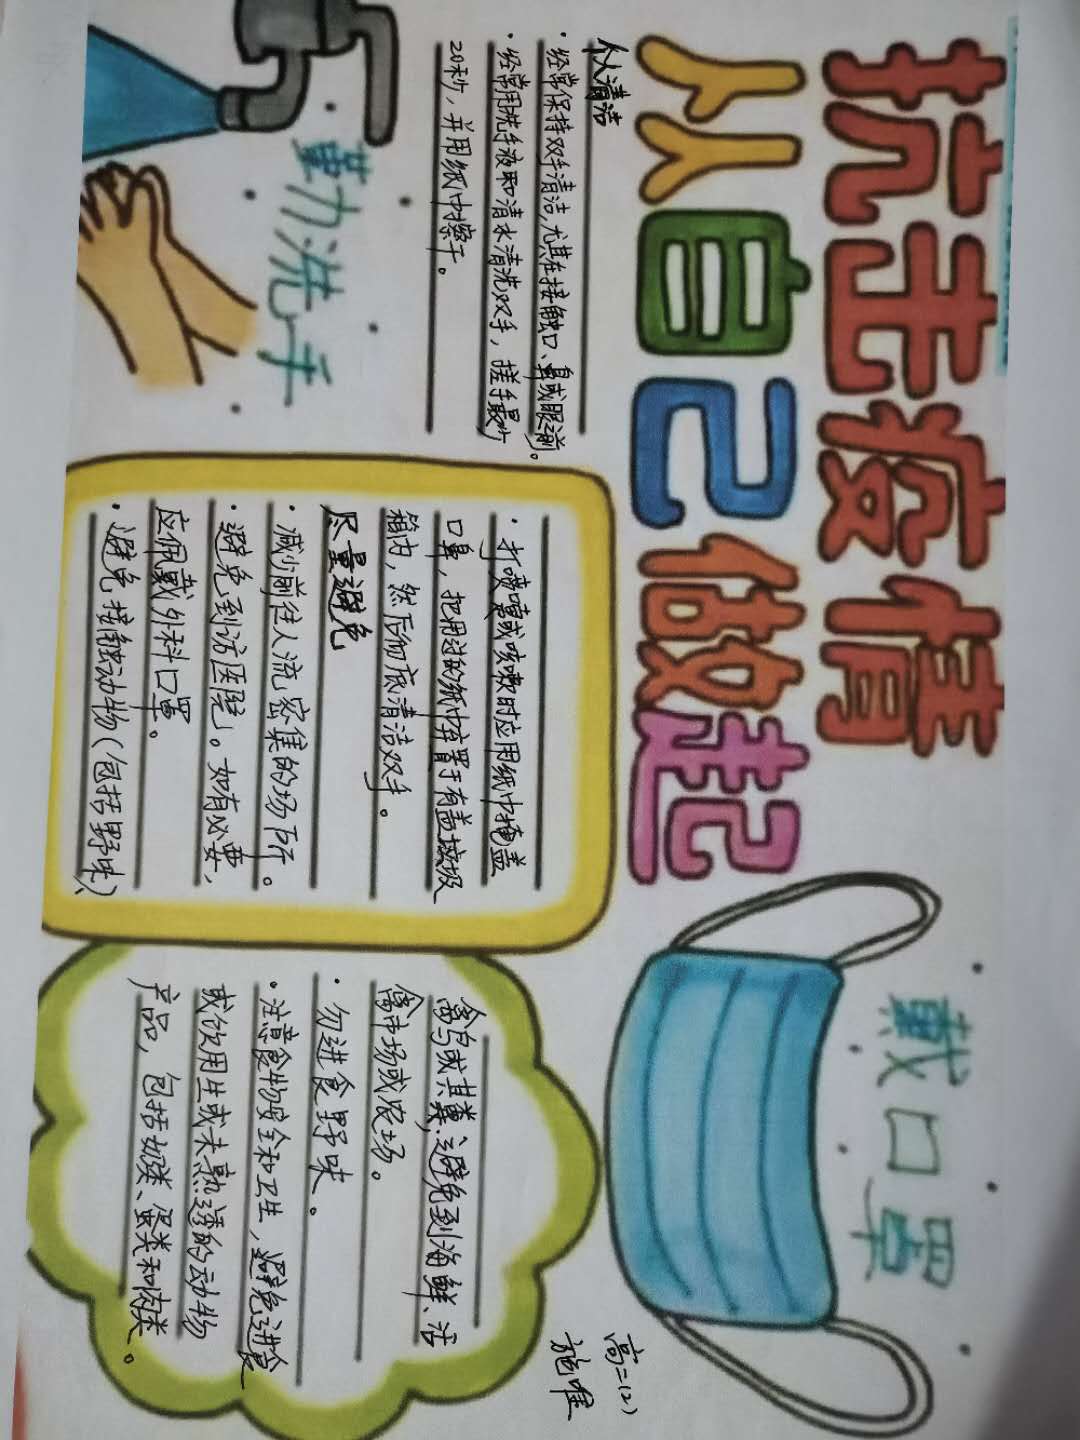 抗击疫情
从自己做起
戴口罩
勤洗手
个人清洁
·经常保持双手清洁,尤其在接触口、鼻或眼前。
·经常用洗手液和清水清洗双手,搓手最少
20秒,并用纸巾擦干。
·打喷嚏或咳嗽时应用纸巾掩盖
口鼻,把用过的纸巾弃置于有盖垃圾
箱内,然后彻底清洁双手。
尽量避免
·减少前往人流密集的场所。
·避免到访医院。如有必要,
应佩戴外科口罩。
·避免接触动物(包括野味)、
禽鸟或其粪;避免到海鲜、活
禽市场或农场。
·勿进食野味。
·注意食物安全和卫生,避免进食
或饮用生或未熟透的动物
产品,包括奶类、蛋类和肉类。
高二(2)
施唯